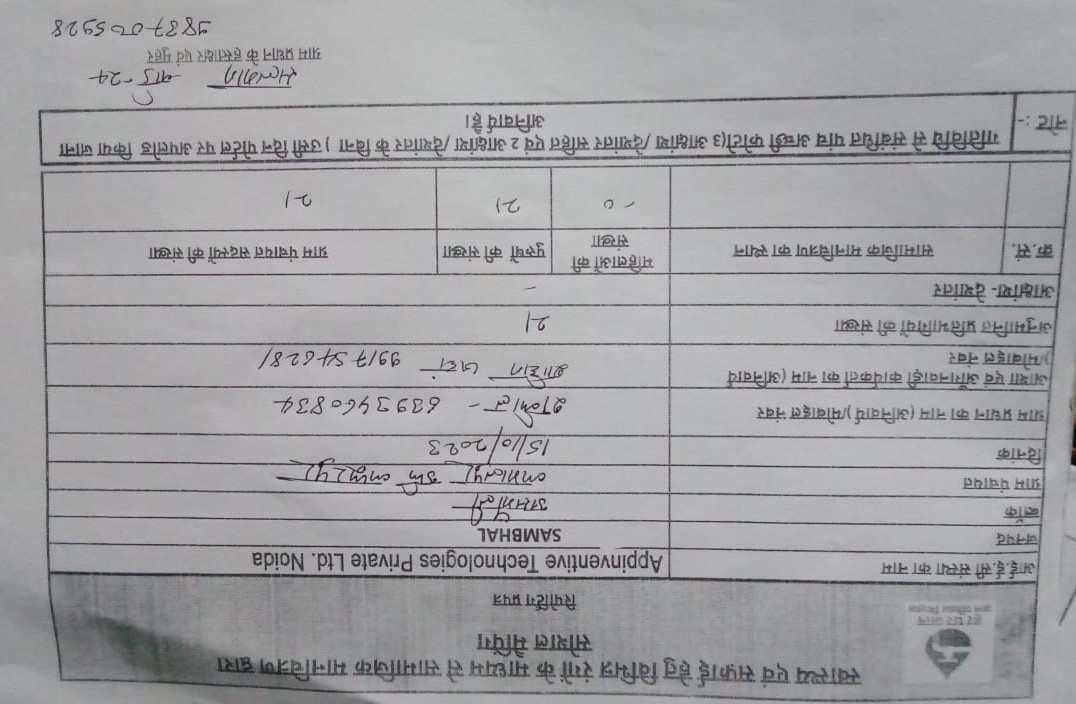 स्वास्थ्य एवं सफाई हेतु विभिन्न रंगों के माध्यम से सामाजिक मानचित्रण द्वारा
सोशल मैपिंग
रिपोर्टिंग प्रपत्र
हर घर जल
जल जीवन मिशन
आई.ई.सी संस्था का नाम Appinventive Technologies Private Ltd. Noida
जनपद SAMBHAL
ब्लॉक असमोली
ग्राम पंचायत
दिनांक 15/10/2023
ग्राम प्रधान का नाम (अनिवार्य)/मोबाइल नंबर 6393460834
आशा एवं आँगनवाड़ी कार्यकर्ता का नाम (अनिवार्य
)/मोबाइल नंबर 9917546281
अनुमानित प्रतिभागियों की संख्या 21
अक्षांश- देशांतर -
क्र.सं. सामाजिक मानचित्रण का स्थान महिलाओं की संख्या पुरुषों की संख्या ग्राम पंचायत सदस्यों की संख्या
- 0 21 21
नोट :- गतिविधि से संबंधित पांच अच्छी फोटो(3 अक्षांश /देशांतर सहित एवं 2 अक्षांश /देशांतर के बिना ) उसी दिन पोर्टल पर अपलोड किया जाना
अनिवार्य है।
वार्ड-24
ग्राम प्रधान के हस्ताक्षर एवं मुहर